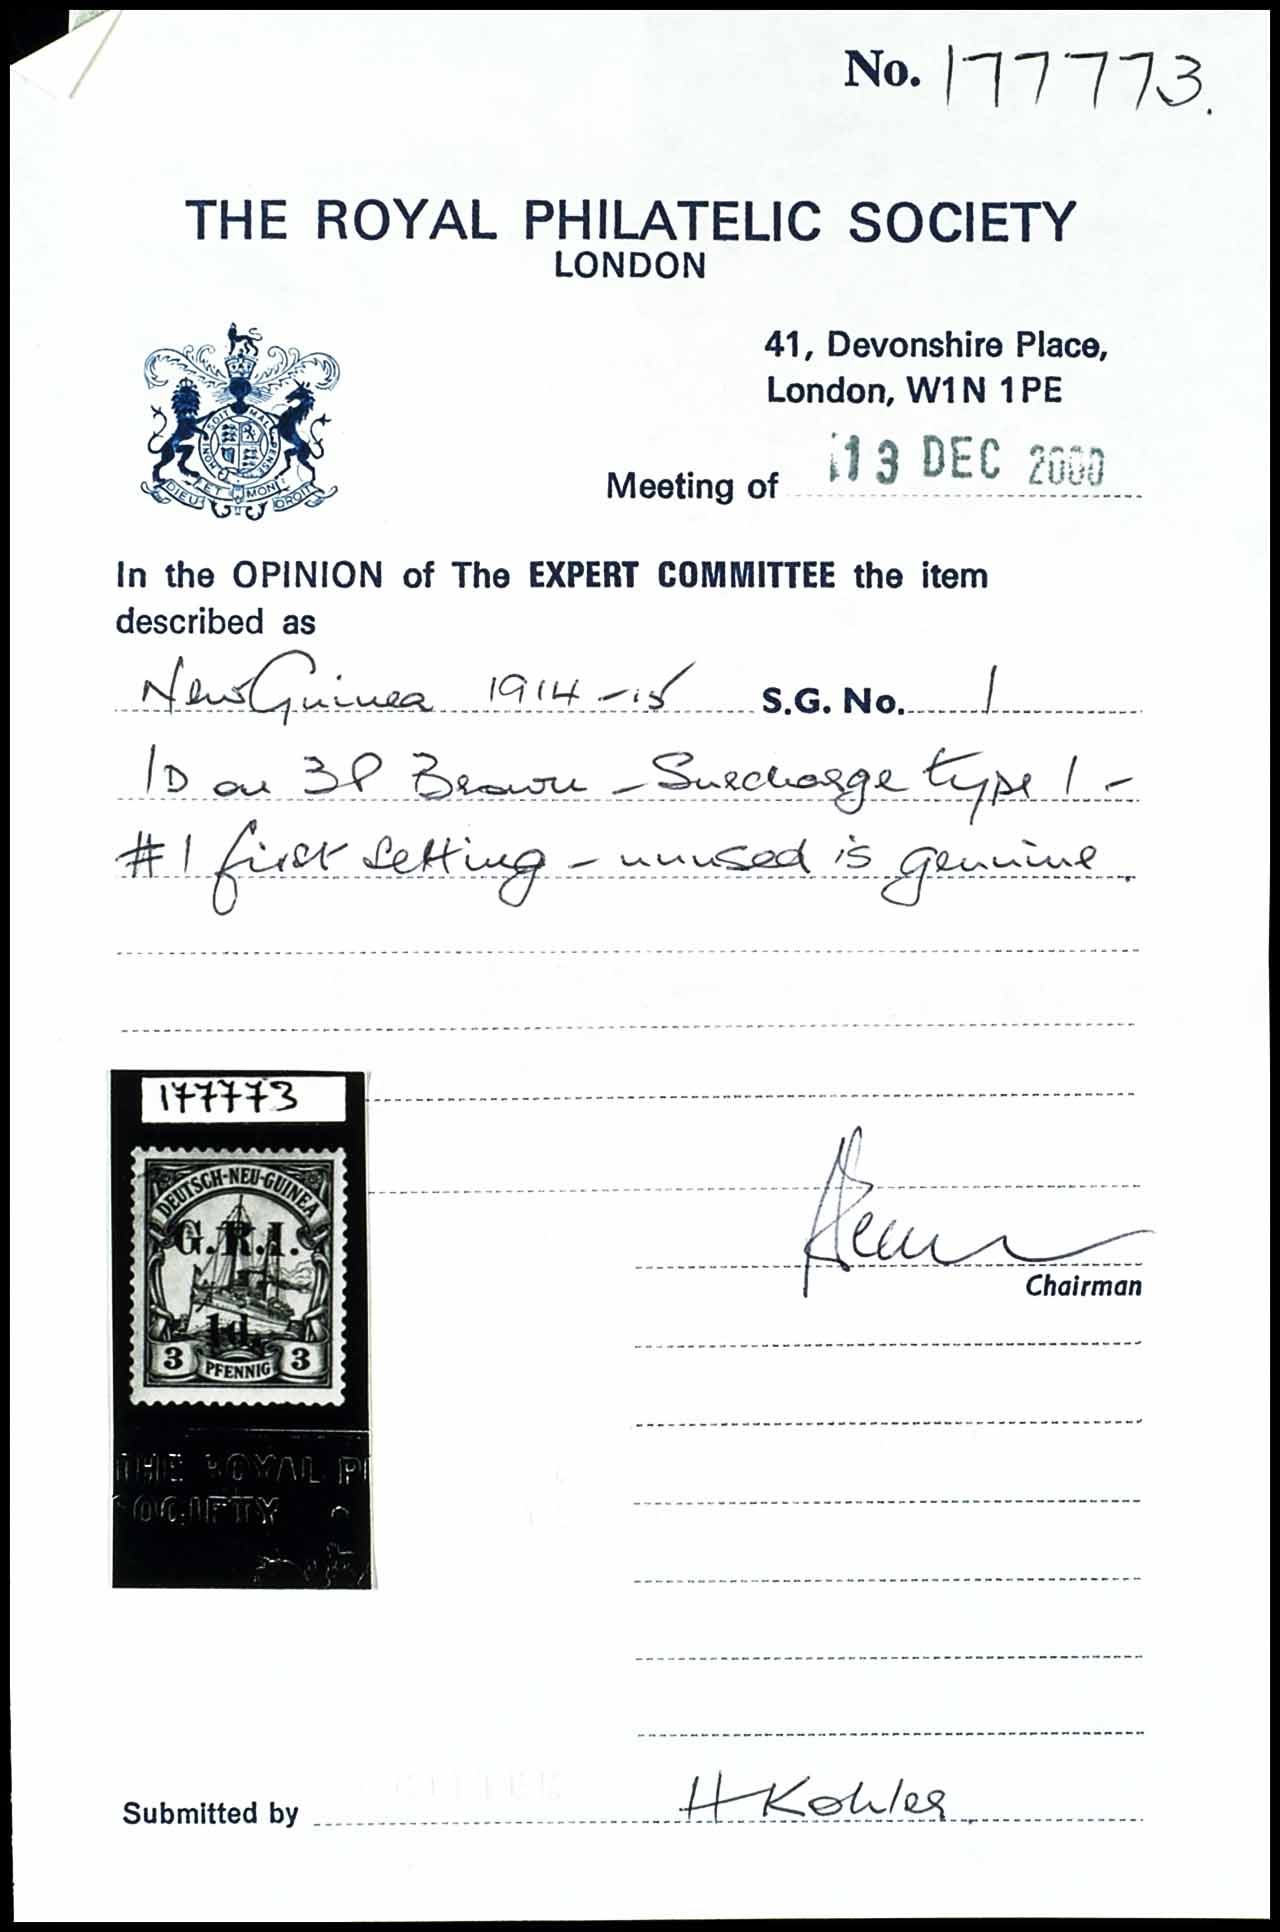 No. 177773.
THE ROYAL PHILATELIC SOCIETY
LONDON
41, Devonshire Place,
London, W1N 1PE
SOIT MAL
PENSE
HONI
DIEU ET MON DROIT
Meeting of 13 DEC 2000
In the OPINION of The EXPERT COMMITTEE the item
described as
New Guinea 1914-15 S.G. No. 1
1D on 3P Brown - Surcharge type 1 -
#1 first setting - unused is genuine.
177773
DEUTSCH-NEU-GUINEA
G.R.I.
1d.
3 PFENNIG 3
THE ROYAL P
SOCIETY
Chairman
Submitted by H Kohler